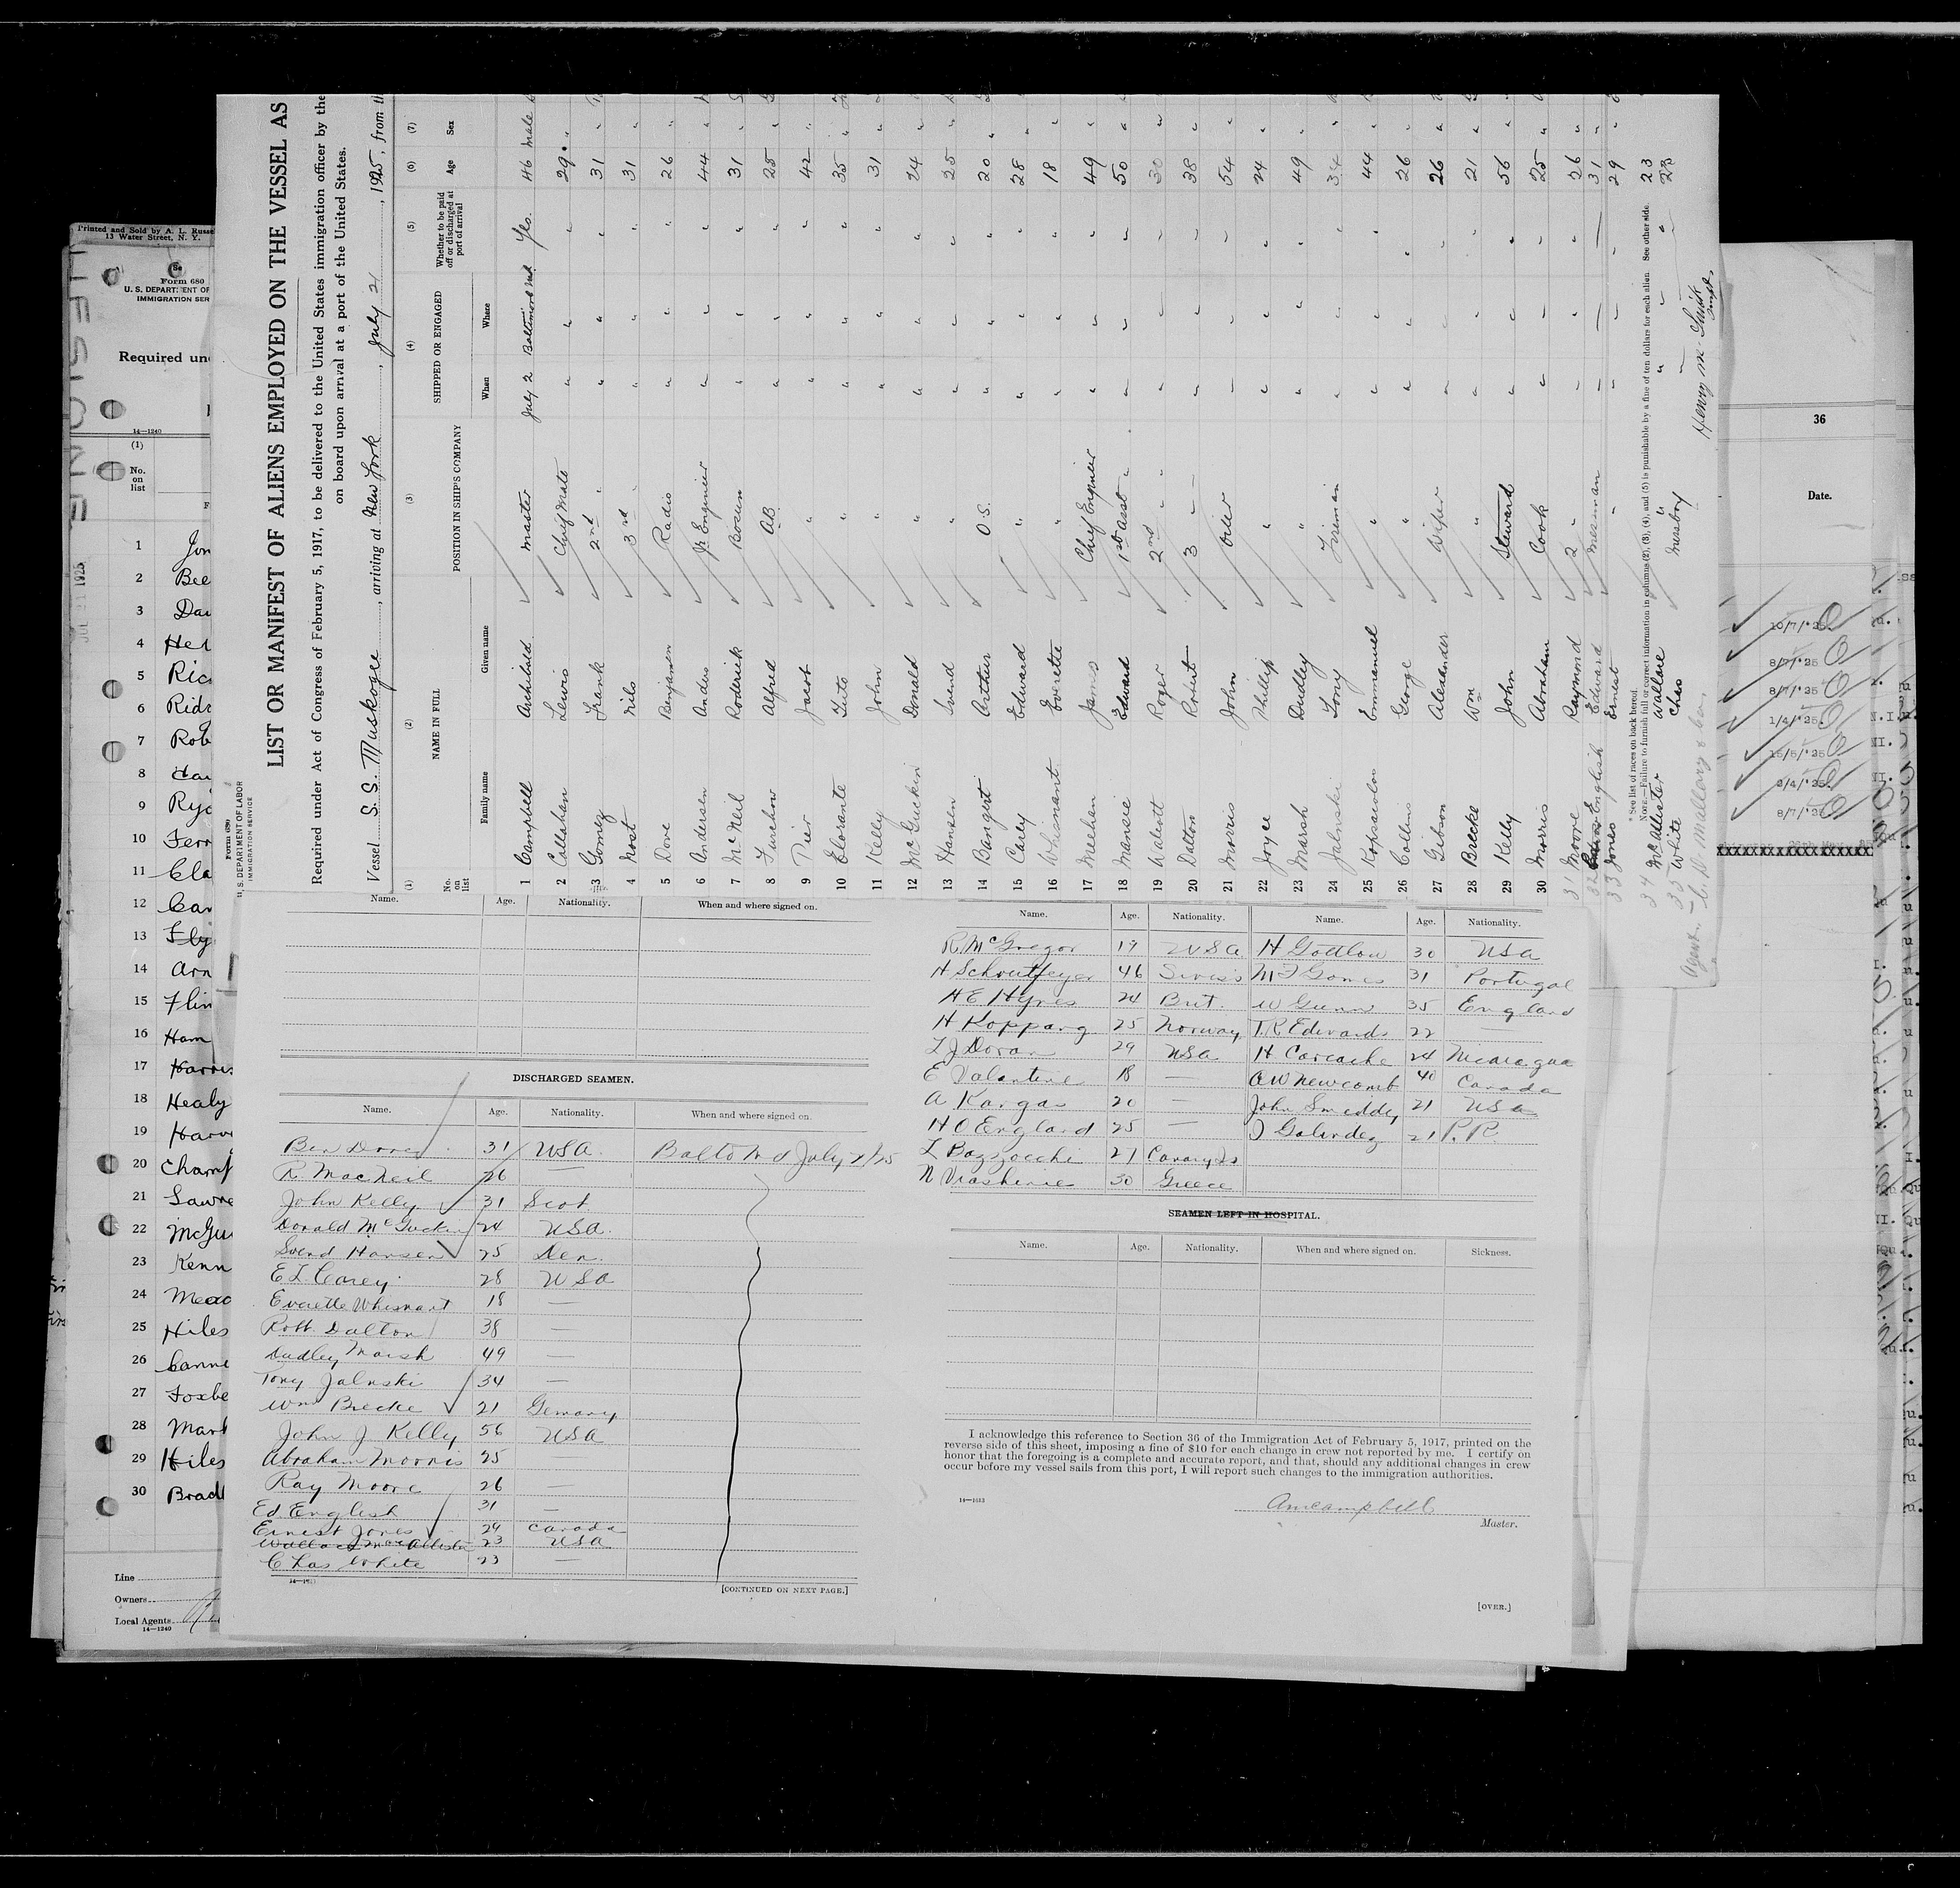 LIST OR MANIFEST OF ALIENS EMPLOYED ON THE VESSEL AS
Required under Act of Congress of February 5, 1917, to be delivered to the United States immigration officer by the
on board upon arrival at a port of the United States.
Vessel S. S. Muskogee, arriving at New York, July 21, 1925, from
Form 680
U. S. DEPARTMENT OF LABOR
IMMIGRATION SERVICE
(1) (2) (3) (4) (5) (6) (7)
No. on list NAME IN FULL POSITION IN SHIP'S COMPANY SHIPPED OR ENGAGED Whether to be paid off or discharged at port of arrival Age Sex
Family name Given name When Where
1 Campbell Archibald Master July 2 Baltimore Md. Yes. 46 Male
2 Callahan Lewis Chief Mate " " " 29 "
3 Gomez Frank 2nd " " " " 31 "
4 Nost Nils 3rd " " " " 31 "
5 Dove Benjamen Radio " " " 26 "
6 Andersen Anders Jr Engineer " " " 44 "
7 McNeil Roderick Bosun " " " 31 "
8 Alfred AB " " " 25 "
9 Tier Jacob " " " " 42 "
10 Elorante Tuto " " " " 35 "
11 Kelly John " " " " 31 "
12 McGuckin Donald " " " " 24 "
13 Hansen Svend " " " " 25 "
14 Bangert Arthur O S. " " " 20 "
15 Carey Edward " " " " 28 "
16 Whisnant Everette " " " " 18 "
17 Meehan James Chief Engineer " " " 49 "
18 Mansie Edward 1st Asst " " " " 50 "
19 Walcott Roger 2nd " " " " 30 "
20 Dalton Robert 3 " " " " 38 "
21 Morris John Oiler " " " 54 "
22 Joyce Phillip " " " " 24 "
23 Marsh Dudley " " " " 49 "
24 Jalnski Tony Fireman " " " 34 "
25 Kopsaolos Emmanuel " " " " 44 "
26 Collins George " " " " 26 "
27 Gibson Alexander Wiper " " " 26 "
28 Brecke Wm " " " " 21 "
29 Kelly John Steward " " " 56 "
30 Morris Abraham Cook " " " 25 "
31 Moore Raymond 2 " " " " 26 "
32 English Edward Messman 31 "
33 Jones Ernest " " " 29 "
* See list of races on back hereof.
NOTE.—Failure to furnish full or correct information in columns (2), (3), (4), and (5) is punishable by a fine of ten dollars for each alien. See other side.
34 McAllister Wallace " " " " 23
35 White Chas Messboy " " " 23
Agent C. D. Mallory & Co.
Henry M. Smith
Name. Age. Nationality. When and where signed on.
DISCHARGED SEAMEN.
Name. Age. Nationality. When and where signed on.
Ben Dove 31 USA. Balto Md July 2/25
R MacNeil 26 —
John Kelly 31 Scot
Donald McGuckin 24 USA.
Svend Hansen 25 Den.
E L Carey 28 USA
Everette Whisnant 18 —
Robt. Dalton 38 —
Dudley Marsh 49 —
Tony Jalnski 34 —
Wm Brecke 21 Germany
John J Kelly 56 USA
Abraham Morris 25 —
Ray Moore 26 —
Ed English 31 —
Ernest Jones 29 Canada
Wallace McAllister 23 USA
Chas White 23 —
[CONTINUED ON NEXT PAGE.]
Name. Age. Nationality. Name. Age. Nationality.
R. McGregor 19 USA H Gottlow 30 USA
H Schroutfeyer 46 Swiss M F Gomes 31 Portugal
H E Hynes 24 Brit. W Gunn 35 England
H Koppang 25 Norway T. R Edwards 22
L J Doran 29 USA H Carcache 24 Nicaragua
E Valentine 18 — O W Newcomb 40 Canada
A Kargas 20 — John Smeddy 21 USA
H O England 25 — J Galindez 21 P. R.
L Bozzocchi 27 Canary Is
N Vrashinis 30 Greece
SEAMEN LEFT IN HOSPITAL.
Name. Age. Nationality. When and where signed on. Sickness.
I acknowledge this reference to Section 36 of the Immigration Act of February 5, 1917, printed on the
reverse side of this sheet, imposing a fine of $10 for each change in crew not reported by me. I certify on
honor that the foregoing is a complete and accurate report, and that, should any additional changes in crew
occur before my vessel sails from this port, I will report such changes to the immigration authorities.
AMcCampbell
Master.
[OVER.]
Printed and Sold by A. L. Russe
13 Water Street, N. Y.
Form 680
U. S. DEPARTMENT OF
IMMIGRATION SER
Required un
14—1240
(1)
No. on list
1 Jon
2 Bee
3 Dav
4 Her
5 Ric
6 Ridr
7 Rob
8 Har
9 Ryc
10 Ferr
11 Cla
12 Car
13 Fly
14 Arn
15 Flin
16 Ham
17 Harris
18 Healy
19 Harv
20 Champ
21 Lawre
22 McGu
23 Kenn
24 Mead
25 Hiles
26 Canne
27 Foxbe
28 Mark
29 Hiles
30 Bradl
Line
Owners
Local Agents
14—1240
36
Date.
10/7/'25
8/7/'25
8/7/'25
1/4/'25
15/5/'25
2/4/'25
8/7/'25